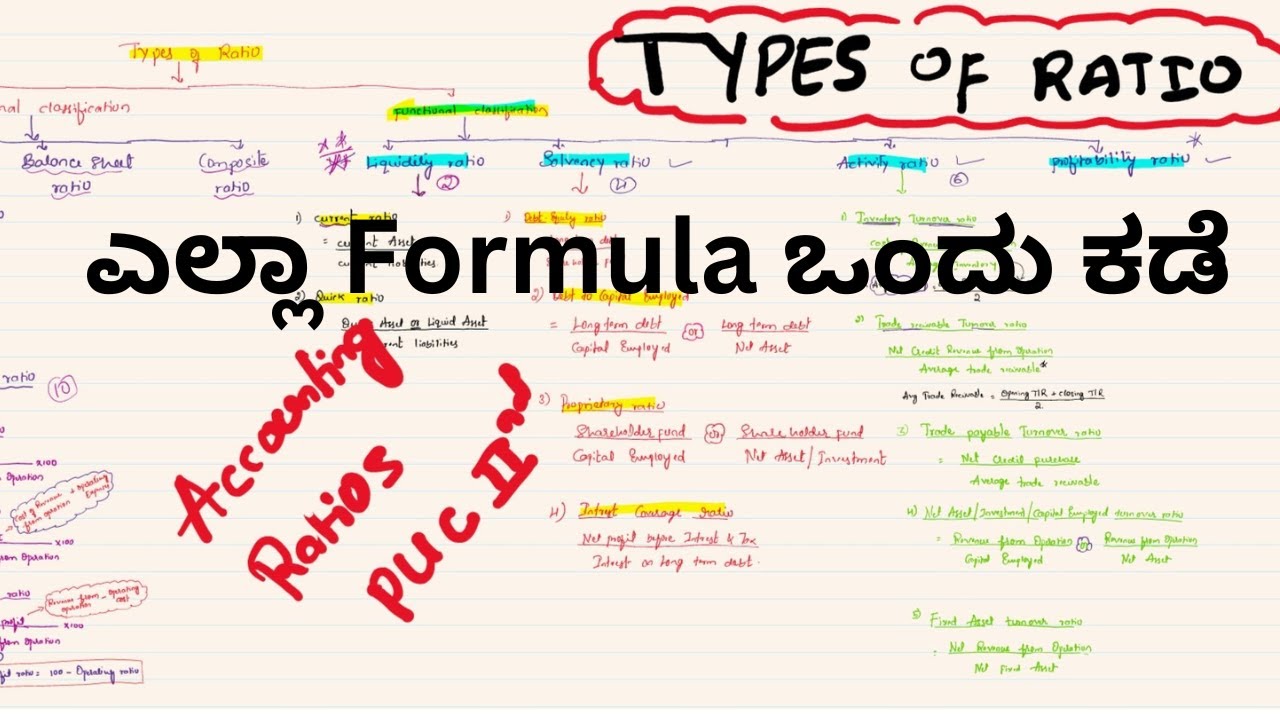 TYPES OF RATIO
Types of Ratio
nal classification
Functional classification
Balance Sheet
ratio
Composite
ratio
Liquidity ratio
2
Solvency ratio
4
Activity ratio
6
Profitability ratio
ಎಲ್ಲಾ Formula ಒಂದು ಕಡೆ
1) Current ratio
= Current Asset
2) Quick ratio
Asset or Liquid Asset
liabilities
1) Debt Equity ratio
2) Debt to Capital Employed
= Long term debt or Long term debt
Capital Employed Net Asset
3) Propritary ratio
Shareholder fund or Share holder fund
Capital Employed Net Asset/Investment
4) Intrest Coarage ratio
Net profit before Intrest & Tax
Intrest on Long term debt.
1) Inventory Turnover ratio
2
2) Trade receivable Turnover ratio
Net Credit Revenue from Opration
Average trade reicivable*
Avg Trade Receivable = Opening T/R + closing T/R
2
3) Trade payable Turnover ratio
= Net Credit purchase
Average trade reicivable
4) Net Asset/Investment/Capital Employed turnover ratio
= Revenue from Opration or Revenue from Opration
Capital Employed Net Asset
5) Fixed Asset turnover ratio
= Net Revenue from Opration
Net Fixed Asset
Accounting
Ratios
PUC IInd
ratio 10
x100
Opration
Cost of Revenue + Operating
from opration Expense
x100
from Opration
ratio
Revenue from - Operating
opration cost
profit x100
from Opration
ratio = 100 - Operating ratio